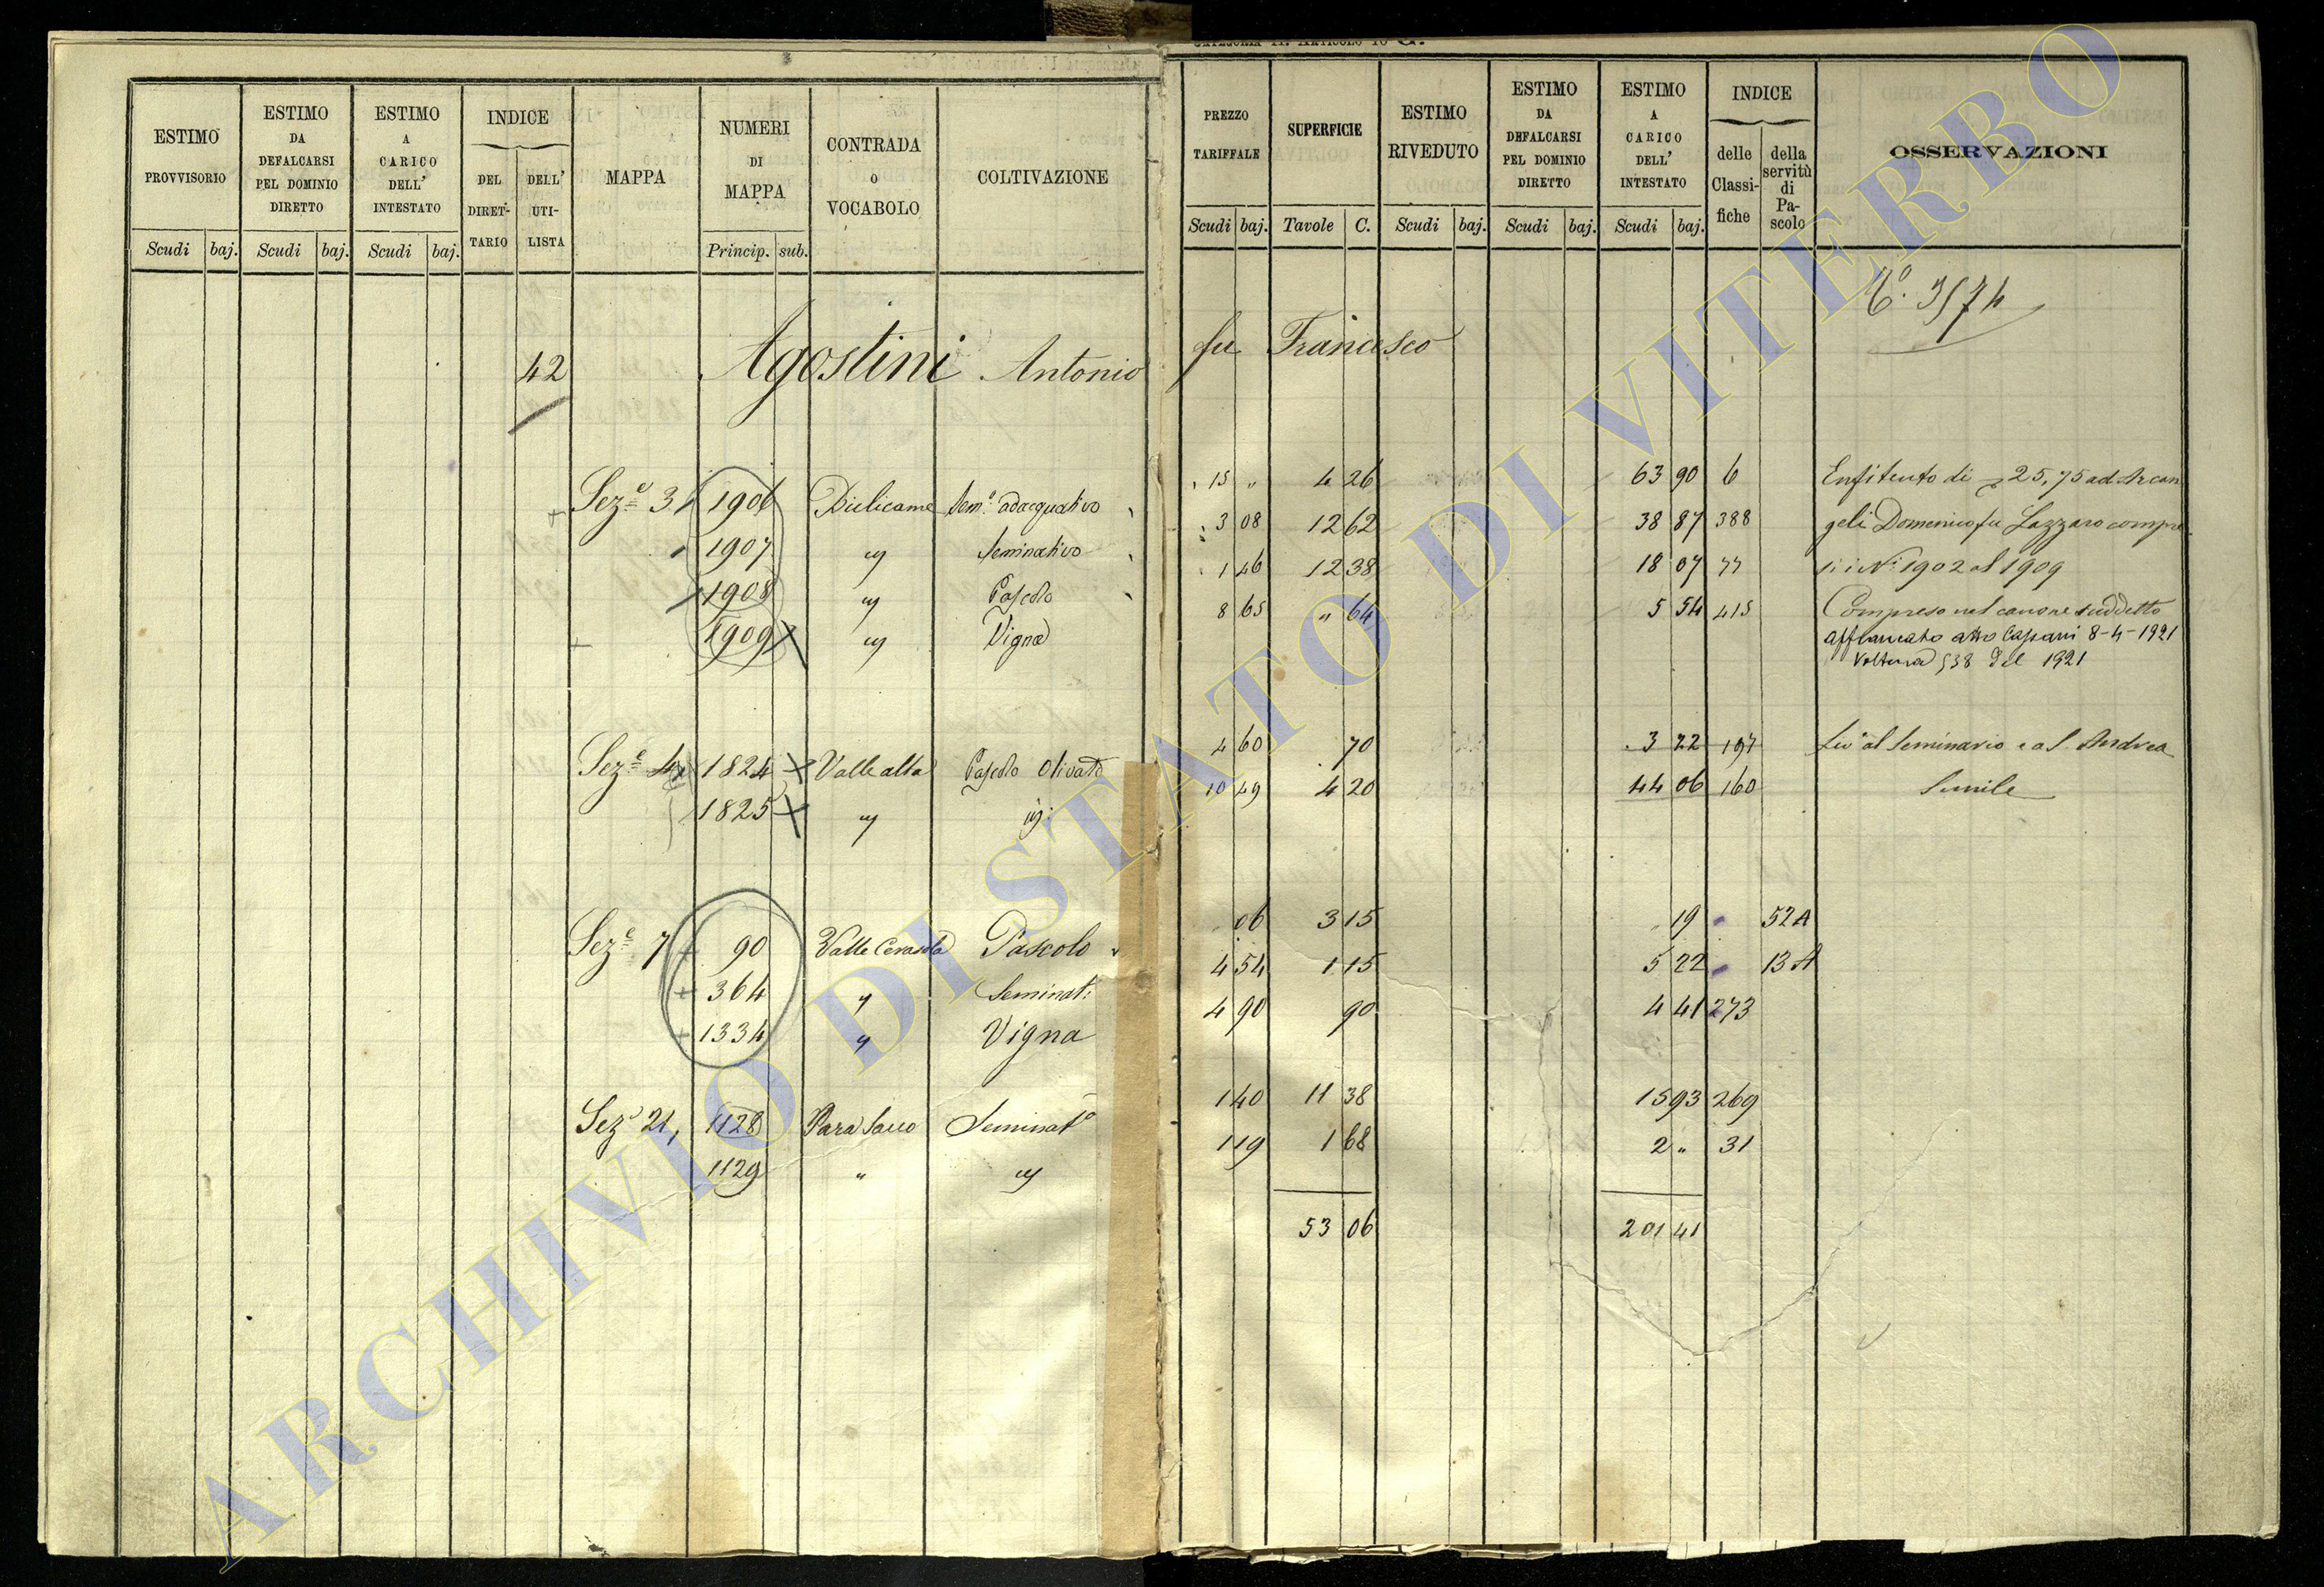 CATEGORIA II. ARTICOLO 10 G.
ESTIMO PROVVISORIO | ESTIMO DA DEFALCARSI PEL DOMINIO DIRETTO | ESTIMO A CARICO DELL' INTESTATO | INDICE DEL DIRETTARIO | DELL' UTILISTA | MAPPA | NUMERI DI MAPPA | CONTRADA O VOCABOLO | COLTIVAZIONE | PREZZO TARIFFALE | SUPERFICIE | ESTIMO RIVEDUTO | ESTIMO DA DEFALCARSI PEL DOMINIO DIRETTO | ESTIMO A CARICO DELL' INTESTATO | INDICE delle Classifiche | della servitù di Pascolo | OSSERVAZIONI
Scudi | baj. | Scudi | baj. | Scudi | baj. | Princip. | sub. | Scudi | baj. | Tavole | C. | Scudi | baj. | Scudi | baj. | Scudi | baj.
N.º 3574
42 Agostini Antonio fu Francesco
Sez.e 3 1906 Bulicame Sem.o adacquativo 15 „ 4 26 63 90 6 Enfiteuto di 25,75 ad Arcan
1907 " Seminativo 3 08 12 62 38 87 388 geli Domenico fu Lazzaro compre
1908 " Pascolo 1 46 12 38 18 07 77 si i N.i 1902 al 1909
1909 " Vigna 8 65 „ 64 5 54 415 Compreso nel canone suddetto
Affrancato atto 8-4-1921
Voltura 538 del 1921
Sez.e 4 1824 Valle alta Pascolo Olivato 4 60 70 3 22 197 al Seminario e a S. Andrea
1825 " " 10 49 4 20 44 06 160 Simile
Sez.e 7 90 Valle Cerasola Pascolo 06 3 15 19 52A
364 " Seminat: 4 54 1 15 5 22 13 A
1334 " Vigna 4 90 90 4 41 273
Sez.e 21, 1128 Para Sacco Seminat.o 1 40 11 38 15 93 269
1129 " " 1 19 1 68 2 „ 31
53 06 201 41
ARCHIVIO DI STATO DI VITERBO